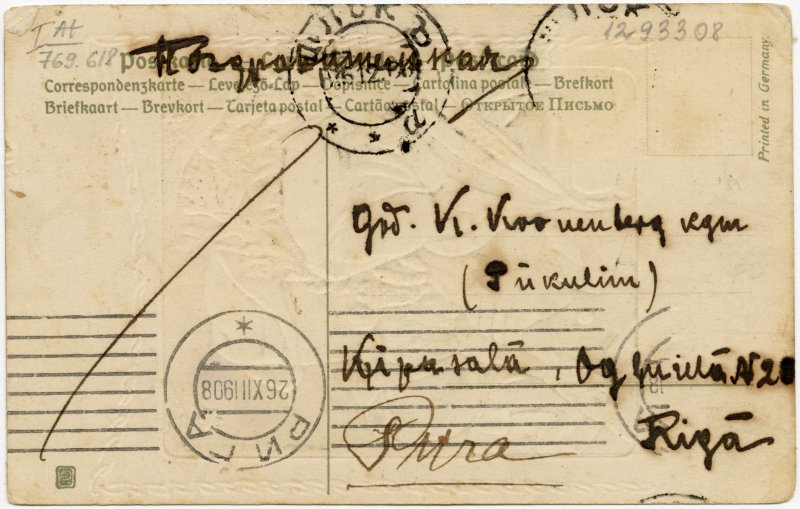 I At
769.618
129330 8
Поздравительная
Postkarte
Correspondenzkarte — Levelező-Lap — Dopisnice — Cartolina postale — Brefkort
Briefkaart — Brevkort — Tarjeta postal — Cartão postal — Открытое Письмо
Printed in Germany.
God. K. Kronenberg kgm
(Pūkulim)
Ķīpusalā, Og ielā № 20
Rīgā
РИГА
26 XII 1908